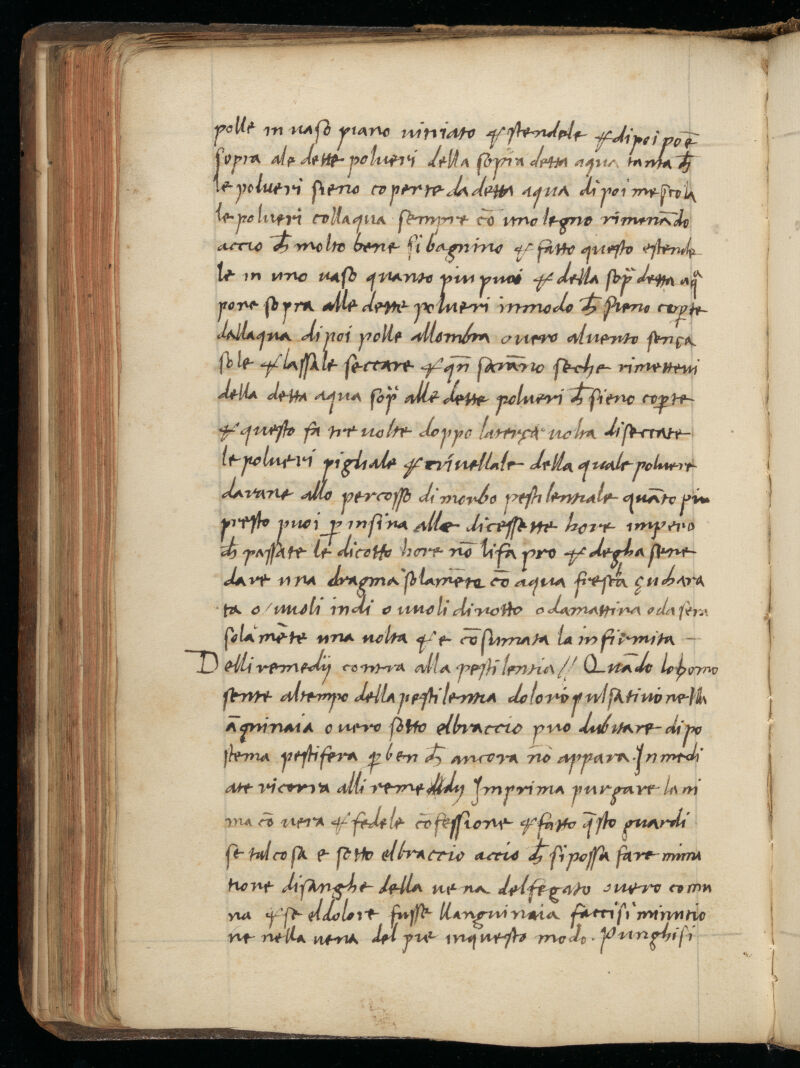 polle in uaso piano uitriato & stendele & dipoi poē
sopra ale dette polueri della sopra detta aqua tanta ch̄
le polueri sieno coperte da detta aqua dipoi mescola
le polueri collaqua sempre cō uno legno rimenādo
accio ch̄ molto bene si bagnino & fatto questo estende
le in uno uaso quanto piu puoi & della sop̄ detta aq̄
pone sopra alle dette polueri inmodo ch̄ sieno cop̄te
dallaqua dipoi polle allombra ouero aluento sença
sole & lassale seccare & qn̄ sarāno seche rimetteui
della detta aqua sop̄ alle dette polueri ch̄ sieno cop̄te
& questo fa tre uolte doppo laterça uolta diseccate
le polueri pigliale & criuellale della quale poluere
darane allo percosso di morbo pestilentiale quāto piu
presto puoi p̄ insina alle dicessette hore impero
ch̄ passate le dicotto hore nō li fa pro & degha sene
dare una dragma solamēte cō aqua frescha çuchara
ta o/uuoli indi o uuoli dinotto odamattina odasera
solamēte una uolta & e cōsumata la infirmita —
Delli remedij contra alla pestilentia // Quādo lohomo
sente altempo della pestilentia dolore pulsatiuo nella
āguinaia ouero sotto elbraccio puo dubitare di po
stema pestifera p̄ ben ch̄ ancora nō appara. Inmedi
ate ricorra alli remedij Imprima purgare lani
ma cō uera & fedele cōfessione & fatto q̄sto guardi
se tal cosa e sotto elbraccio accio ch̄ si possa fare minu
tione disanghe della uena delfegato ouero comu
na & se eldolore fusse llanguinaia faccisi minutio
ne nella uena del pie inquesto modo. Punghisi